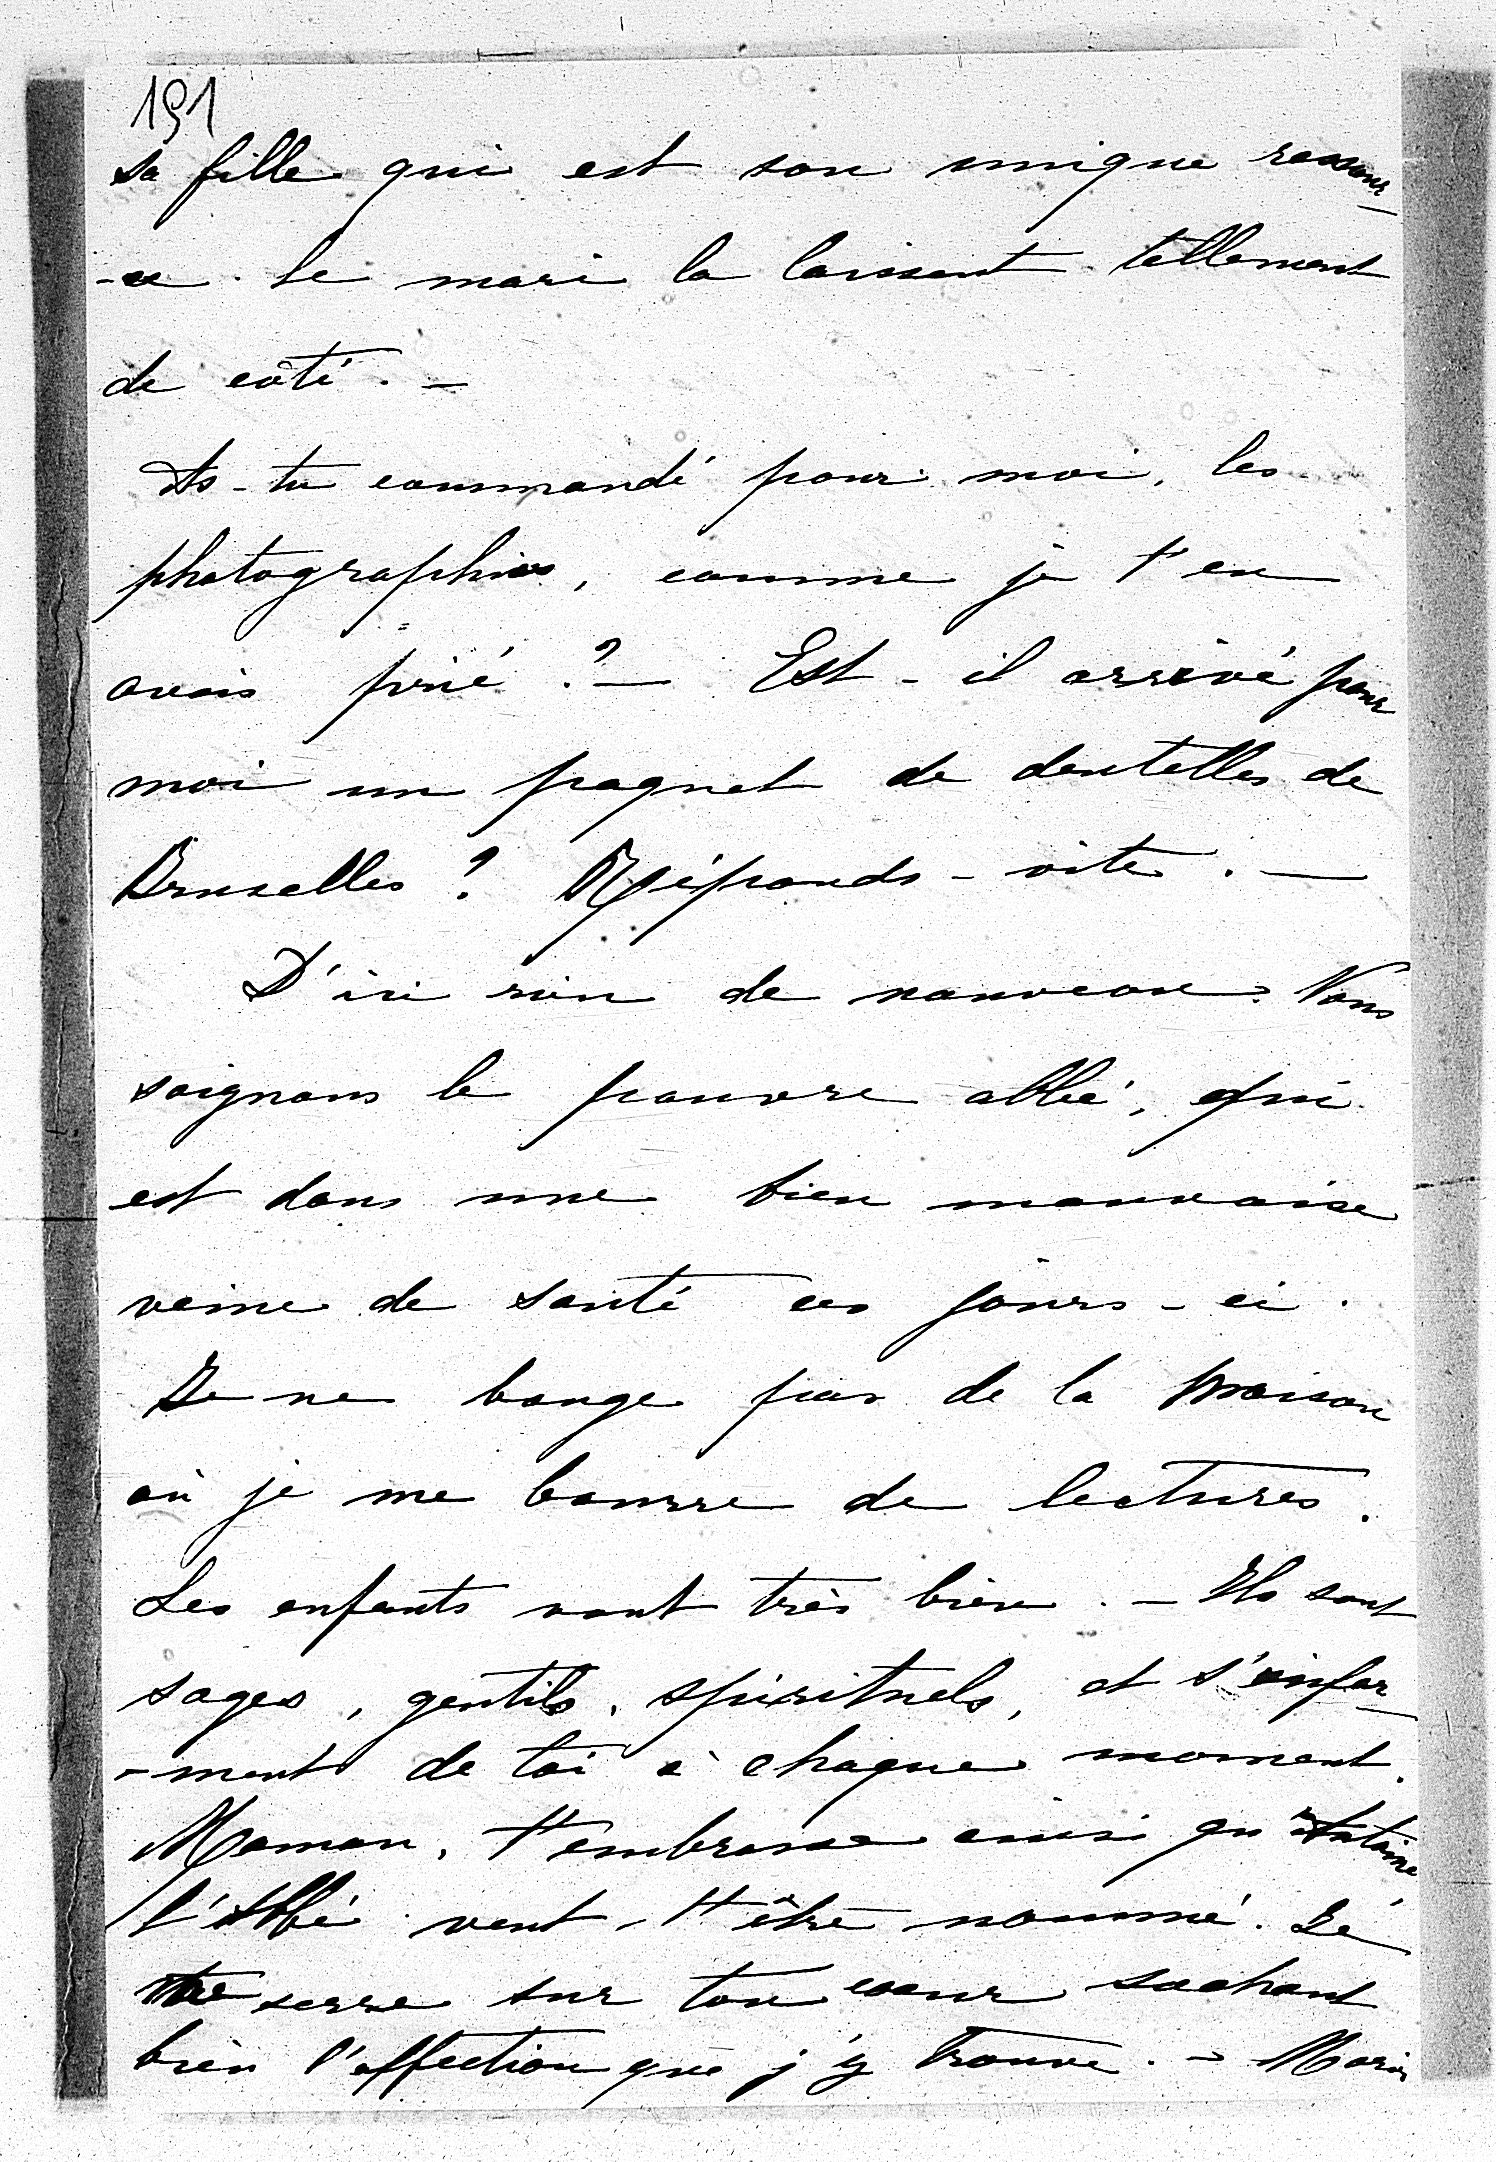 191
sa fille qui est son unique ressour-
-ce. Le mari la laissant tellement
de côté. —
As-tu commandé pour moi, les
photographies, comme je t'en
avais prié ? — Est-il arrivé pour
moi un paquet de dentelles de
Bruxelles ? Réponds-vite. —
D'ici rien de nouveau. Nous
soignons le pauvre abbé, qui
est dans une bien mauvaise
veine de santé ces jours-ci.
Je ne bouge pas de la maison
où je me bourre de lectures.
Les enfants vont très bien. — Ils sont
sages, gentils, spirituels, et s'infor-
-ment de toi à chaque moment.
Maman, t'embrasse ainsi qu'Antoine
l'Abbé veut-t'être nommé. Je
me serre sur ton cœur sachant
bien l'affection que j'y trouve. — Marie